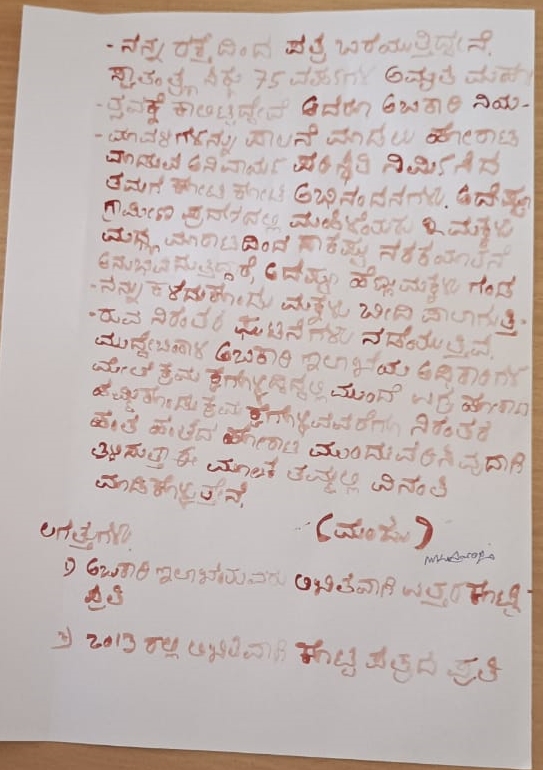 - ನನ್ನ ರಕ್ತದಿಂದ ಪತ್ರ ಬರೆಯುತ್ತಿದ್ದೇನೆ.
ಸ್ವಾತಂತ್ರ್ಯ ಸಿಕ್ಕು 75 ವರ್ಷಗಳ ಅಮೃತ ಮಹೋ
- ತ್ಸವಕ್ಕೆ ಕಾಲಿಟ್ಟಿದ್ದೇವೆ ಆದರೂ ಅಬಕಾರಿ ನಿಯ-
- ಮಾವಳಿಗಳನ್ನು ಪಾಲನೆ ಮಾಡಲು ಹೋರಾಟ
ಮಾಡುವ ಅನಿವಾರ್ಯ ಪರಿಸ್ಥಿತಿ ನಿರ್ಮಿಸಿದ
ತಮಗೆ ಕೋಟಿ ಕೋಟಿ ಅಭಿನಂದನೆಗಳು. ಅದೆಷ್ಟೂ
ಗ್ರಾಮೀಣ ಪ್ರದೇಶದಲ್ಲಿ ಮಹಿಳೆಯರು & ಮಕ್ಕಳು
ಮದ್ಯ ಮಾರಾಟದಿಂದ ಸಾಕಷ್ಟು ನರಕಯಾತನೆ
ಅನುಭವಿಸುತ್ತಿದ್ದಾರೆ, ಅದೆಷ್ಟೂ ಹೆಣ್ಣು ಮಕ್ಕಳು ಗಂಡ
- ನನ್ನು ಕಳೆದುಕೊಂಡು ಮಕ್ಕಳು ಬೀದಿ ಪಾಲಾಗುತ್ತಿ-
- ರುವ ನಿರಂತರ ಘಟನೆಗಳು ನಡೆಯುತ್ತಿವೆ.
ಮುದ್ದೇಬಿಹಾಳ ಅಬಕಾರಿ ಇಲಾಖೆಯ ಅಧಿಕಾರಿಗಳ
ಮೇಲೆ ಕ್ರಮ ಕೈಗೊಳ್ಳದಿದ್ದಲ್ಲಿ ಮುಂದೆ ಉಗ್ರ ಹೋರಾಟ
ಹಮ್ಮಿಕೊಂಡು ಕ್ರಮ ಕೈಗೊಳ್ಳುವವರೆಗೂ ನಿರಂತರ
ಹಂತ ಹಂತದ ಹೋರಾಟ ಮುಂದುವರೆಸುವುದಾಗಿ
ತಿಳಿಸುತ್ತಾ ಈ ಮೂಲಕ ತಮ್ಮಲ್ಲಿ ವಿನಂತಿ
ಮಾಡಿಕೊಳ್ಳುತ್ತೇನೆ.
ಲಗತ್ತುಗಳು
1) ಅಬಕಾರಿ ಇಲಾಖೆಯವರು ಲಿಖಿತವಾಗಿ ಉತ್ತರ ಕೊಟ್ಟ
ಪ್ರತಿ
2) 2013 ರಲ್ಲಿ ಲಿಖಿತವಾಗಿ ಕೊಟ್ಟ ಪತ್ರದ ಪ್ರತಿ